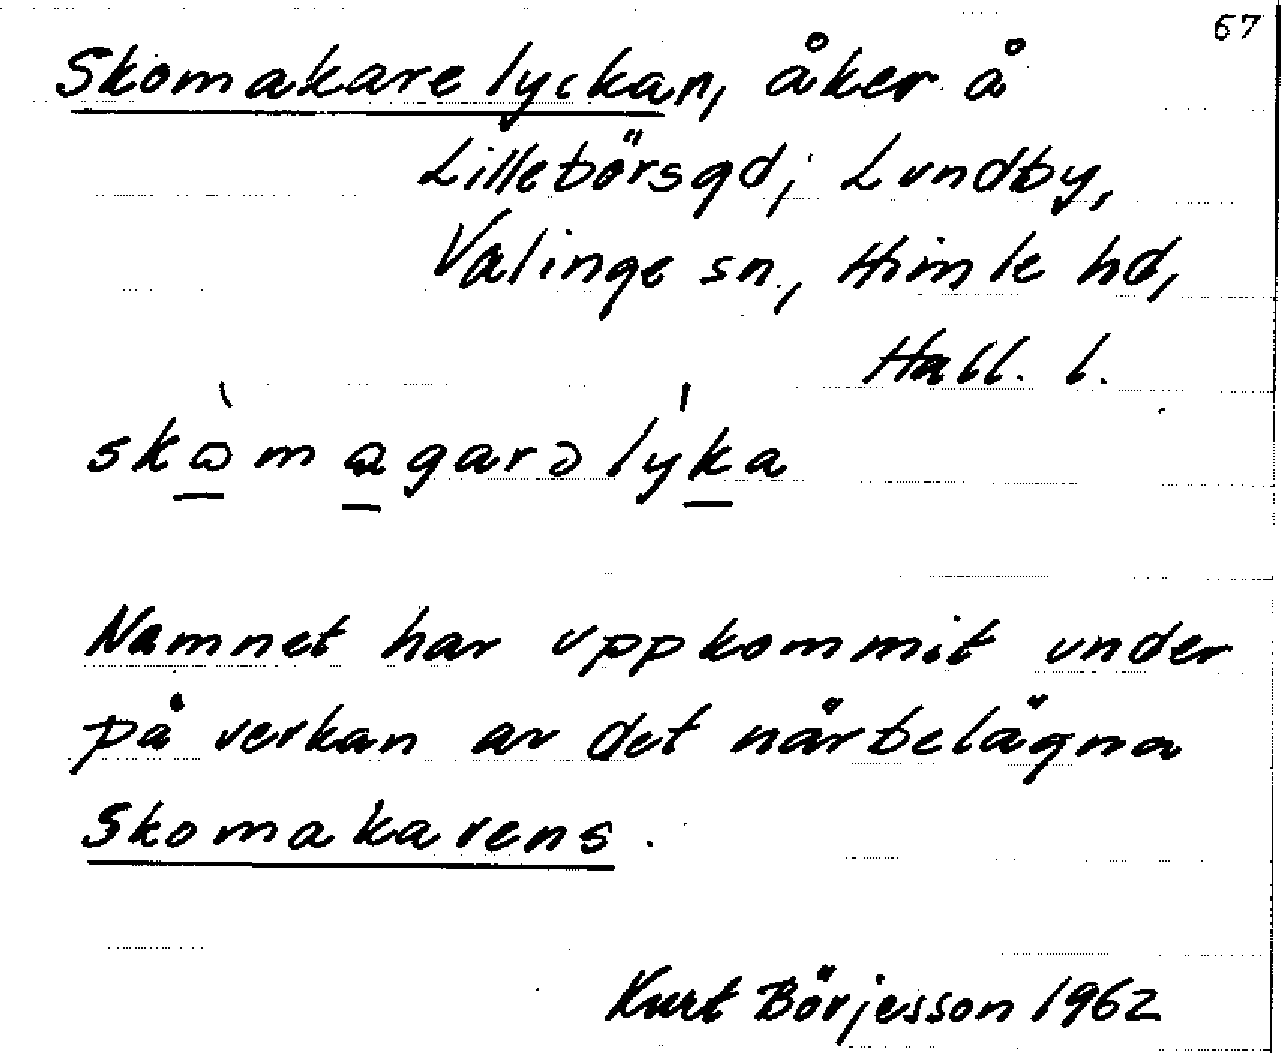 67
Skomakarelyckan, åker å
Lillebörsgd; Lundby,
Valinge sn., Himle hd,
Hall. l.
Namnet har uppkommit under
på verkan av det närbelägna
Skomakarens.
Kurt Börjesson 1962